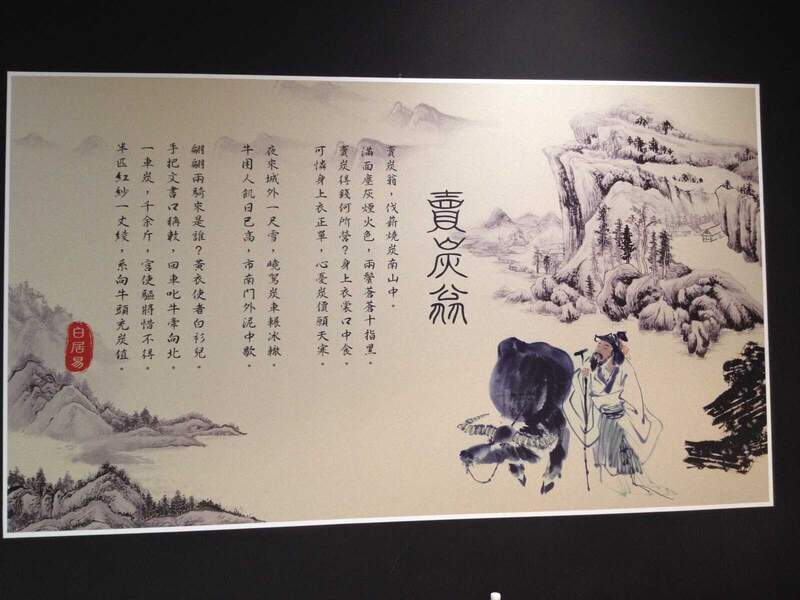 賣炭翁
賣炭翁，伐薪燒炭南山中。
滿面塵灰煙火色，兩鬢蒼蒼十指黑。
賣炭得錢何所營？身上衣裳口中食。
可憐身上衣正單，心憂炭價願天寒。
夜來城外一尺雪，曉駕炭車輾冰轍。
牛困人飢日已高，市南門外泥中歇。
翩翩兩騎來是誰？黃衣使者白衫兒。
手把文書口稱敕，回車叱牛牽向北。
一車炭，千余斤，宮使驅將惜不得。
半匹紅紗一丈綾，系向牛頭充炭值。
白居易